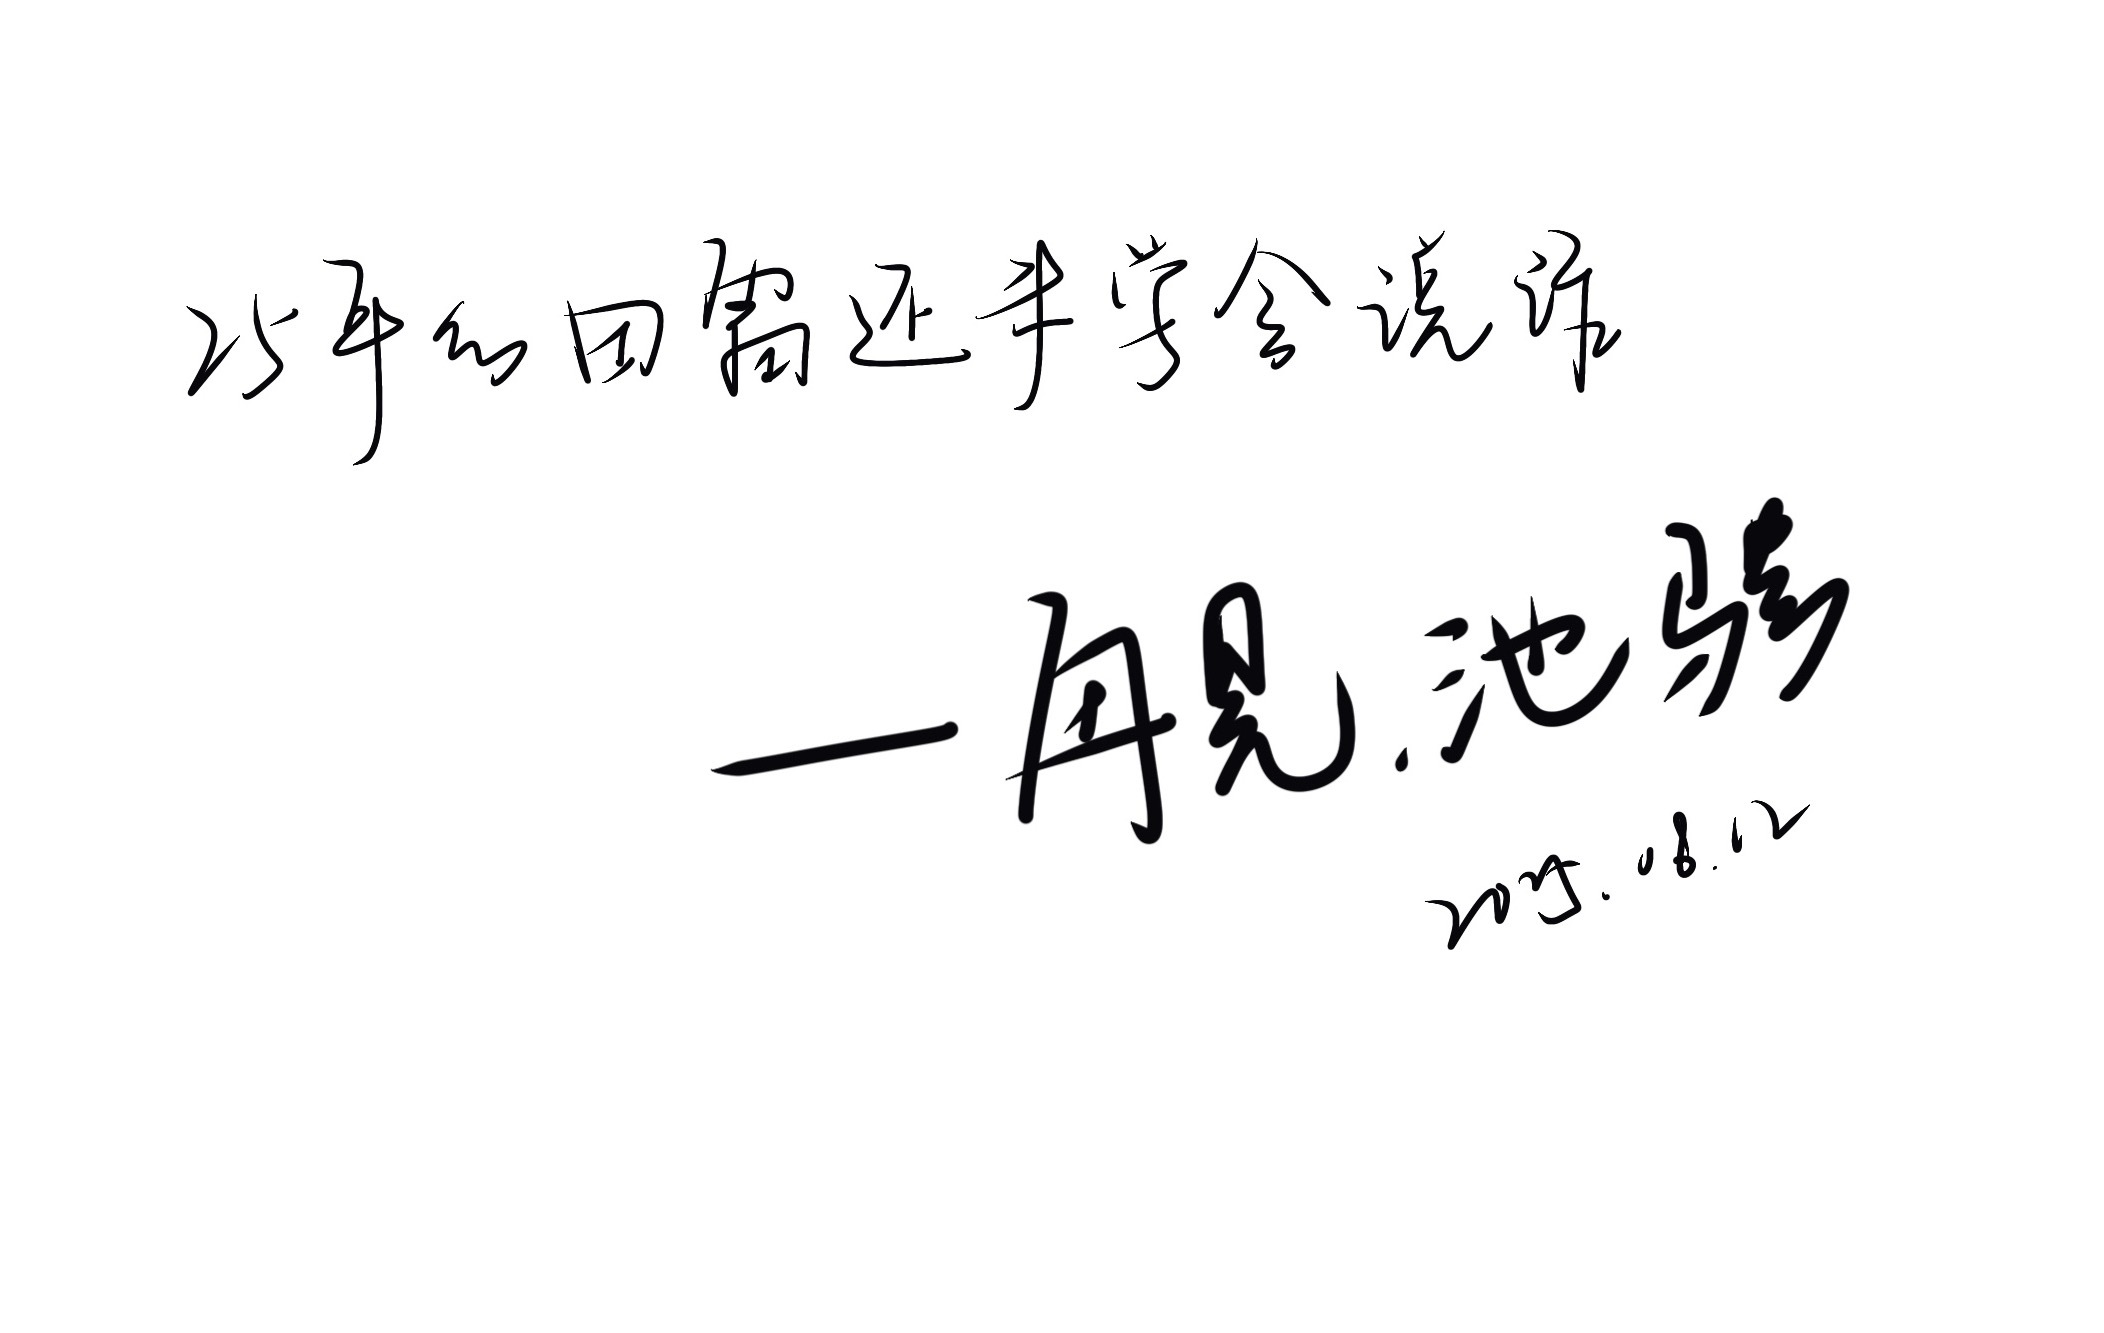 25年的田雷还未学会说
—再见.池骋
2025.08.12